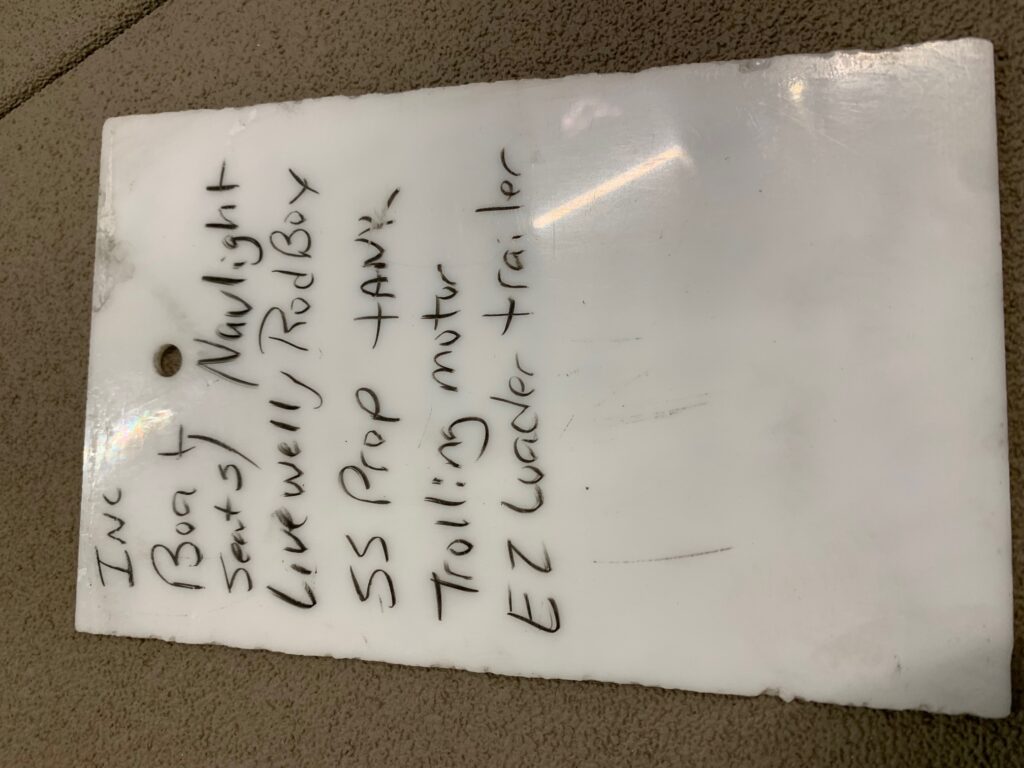 Inc
Boat
Seats, Navlight
Livewell, RodBox
SS Prop tANK
Trolling motor
EZ Loader trailer